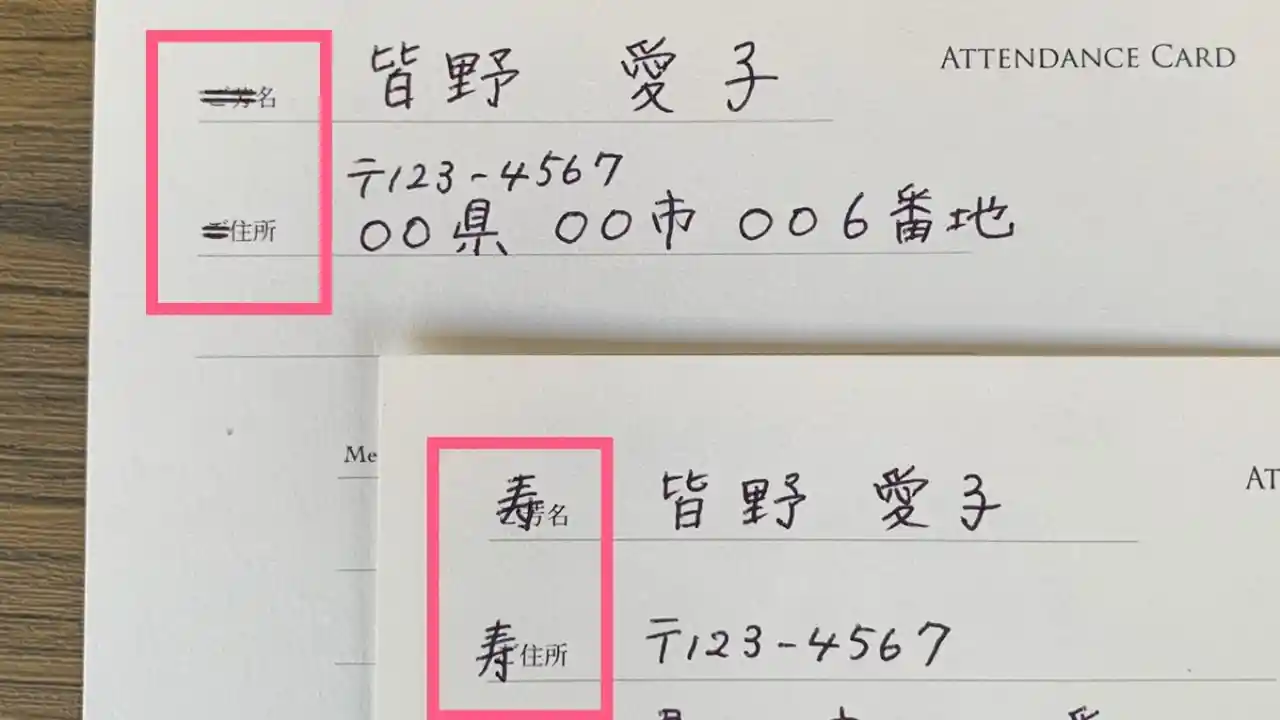 ATTENDANCE CARD
ご芳名 皆野 愛子
〒123-4567
ご住所 〇〇県 〇〇市 〇〇6番地
Me
AT
寿 芳名 皆野 愛子
〒123-4567
寿 ご住所